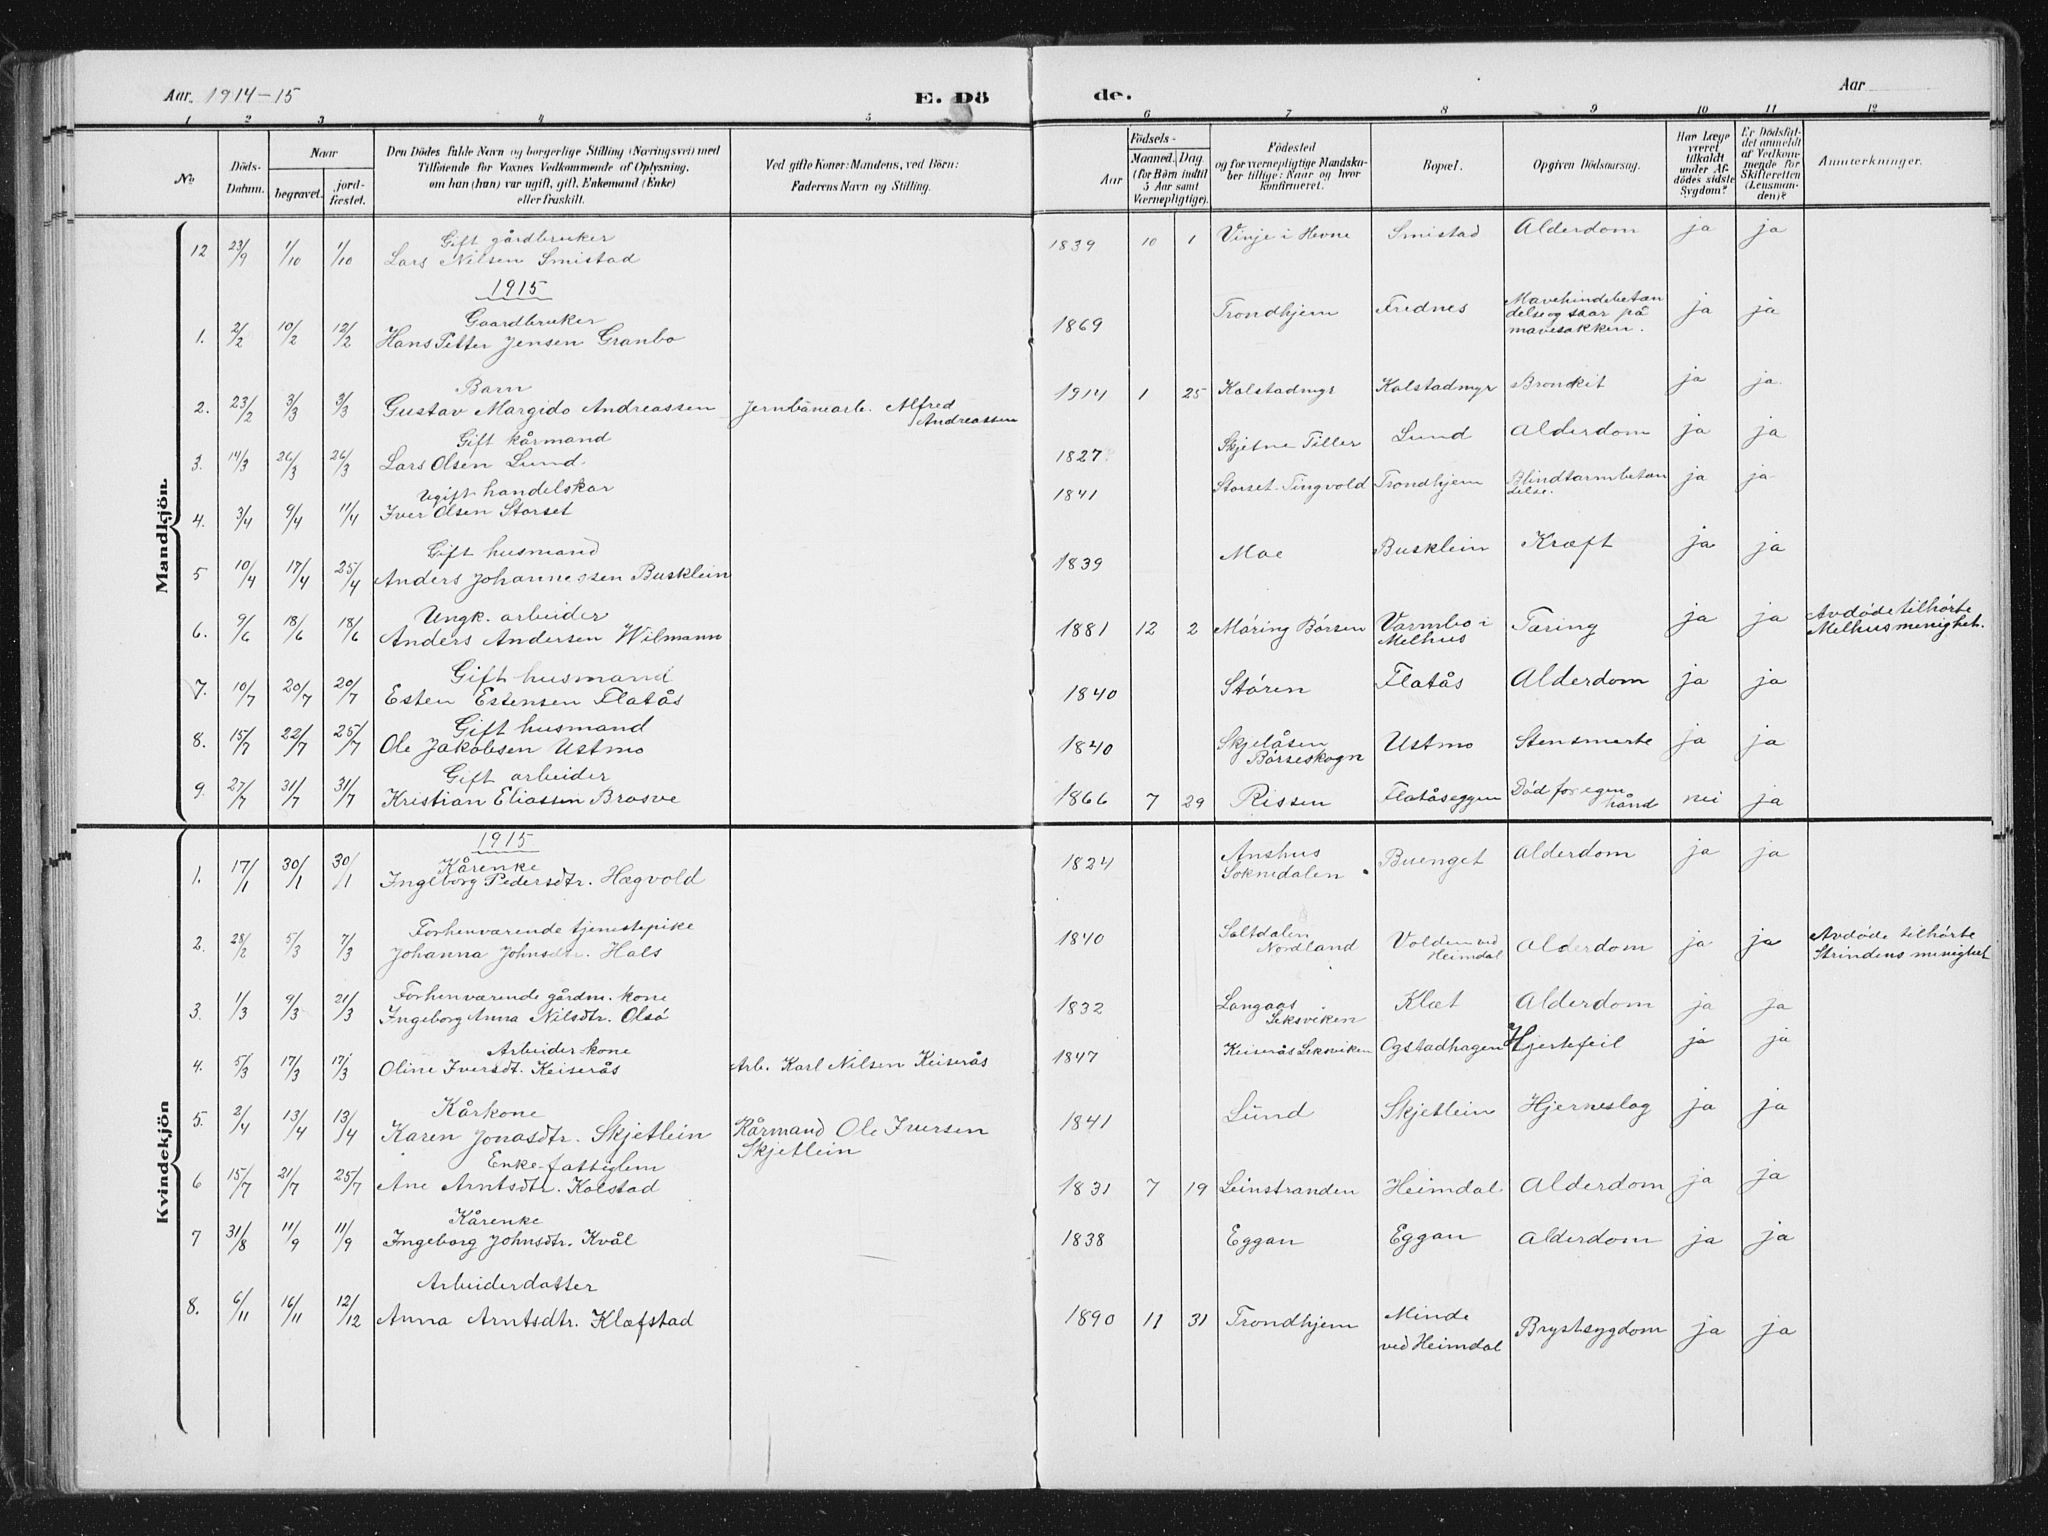 Aar. 1914-15
E. Dö
de.
Aar
1 2 3 4 5 6 7 8 9 10 11 12
No
Döds-Datum.
Naar
begravet.
jord-fæstet.
Den Dödes fulde Navn og borgerlige Stilling (Næringsvei) med
Tilföiende for Voxnes Vedkommende af Oplysning,
om han (hun) var ugift, gift, Enkemand (Enke)
eller fraskilt.
Ved gifte Koner: Mandens, ved Börn:
Faderens Navn og Stilling.
Födsels-
Aar
Maaned. Dag.
(for Börn indtil
5 Aar samt
Værnepligtige).
Födested
og for værnepligtige Mandska-
ber tillige: Naar og hvor
konfirmeret.
Bopæl.
Opgiven Dödsaarsag.
Har Læge
været
tilkaldt
under Af-
dödes sidste
Sygdom?
Er Dödsfal-
det anmeldt
af Vedkom-
mende for
Skifteretten
(Lensman-
den)?
Anmærkninger.
Mandkjön.
Gift gårdbruker
12 23/9 1/10 1/10 Lars Nilsen Smistad 1839 10 1 Vinje i Hevne Smistad Alderdom ja ja
1915
Gaardbruker
1. 2/2 10/2 12/2 Hans Petter Jensen Granbo 1869 Trondhjem Frednes Mavehindebetan
delse og saar på
mavesækken. ja ja
Barn
2. 23/2 3/3 3/3 Gustav Margido Andreassen Jernbanearb. Alfred
Andreassen 1914 1 25 Kolstadmyr Kolstadmyr Bronkit ja ja
Gift kårmand
3. 14/3 26/3 26/3 Lars Olsen Lund 1827 Skjetne Tiller Lund Alderdom ja ja
Ugift handelskar
4. 3/4 9/4 11/4 Iver Olsen Storset 1841 Storset Tingvold Trondhjem Blindtarmbetan
delse. ja ja
Gift husmand
5 10/4 17/4 25/4 Anders Johannessen Busklein 1839 Moe Busklein Kræft ja ja
Ungk. arbeider
6. 9/6 18/6 18/6 Anders Andersen Wilmann 1881 12 2 Möring Börsen Varmbo i
Melhus Tæring ja ja Avdöde tilhörte
Melhus menighet.
Gift husmand
7. 10/7 20/7 20/7 Esten Estensen Flatås 1840 Stören Flatås Alderdom ja ja
Gift husmand
8. 15/7 22/7 25/7 Ole Jakobsen Ustmo 1840 Skjelåsen
Börseskogn Ustmo Stensmerte ja ja
Gift arbeider
9. 27/7 31/7 31/7 Kristian Eliassen Brasve 1866 7 29 Rissen Flatåseggen Död for egen
hånd nei ja
Kvindekjön
1915
Kårenke
1. 17/1 30/1 30/1 Ingeborg Pedersdtr. Hægvold 1824 Anshus
Soknedalen Buenget Alderdom ja ja
Forhenværende tjenestepike
2. 28/2 5/3 7/3 Johanna Johnsdtr. Hals 1840 Saltdalen
Nordland Volden ved
Heimdal Alderdom ja ja Avdöde tilhörte
Strindens menighet
Forhenværende gårdm. kone
3. 1/3 9/3 21/3 Ingeborg Anna Nilsdtr. Olsö 1832 Langaas
Leksviken Klæt Alderdom ja ja
Arbeider kone
4. 5/3 17/3 17/3 Oline Iversdt. Keiserås Arb. Karl Nilsen Keiserås 1847 Keiserås Leksviken Ogstadhagen Hjertefeil ja ja
Kårkone
5. 2/4 13/4 13/4 Karen Jonasdtr. Skjetlein Kårmand Ole Iversen
Skjetlein 1841 Lund Skjetlein Hjerneslag ja ja
Enke-fattiglem
6 15/7 21/7 25/7 Ane Arntsdtr. Kolstad 1831 7 19 Leinstranden Heimdal Alderdom ja ja
Kårenke
7 31/8 11/9 11/9 Ingeborg Johnsdtr. Kvål 1838 Eggan Eggan Alderdom ja ja
Arbeiderdatter
8. 6/11 16/11 12/12 Anna Arntsdtr. Klæfstad 1890 11 31 Trondhjem Minde
ved Heimdal Brystsygdom ja ja